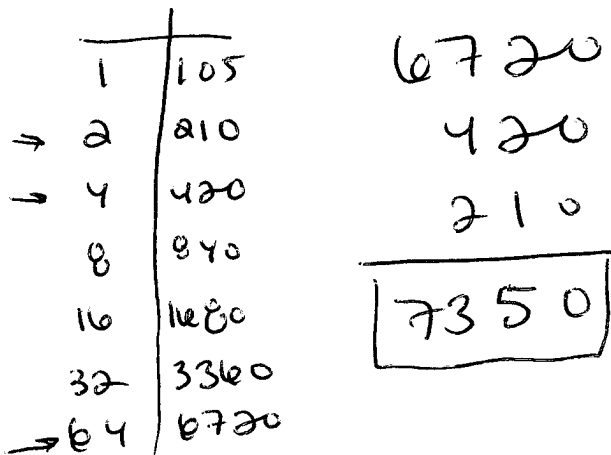 1 105
→ 2 210
→ 4 420
8 840
16 1680
32 3360
→ 64 6720
6720
420
210
7350